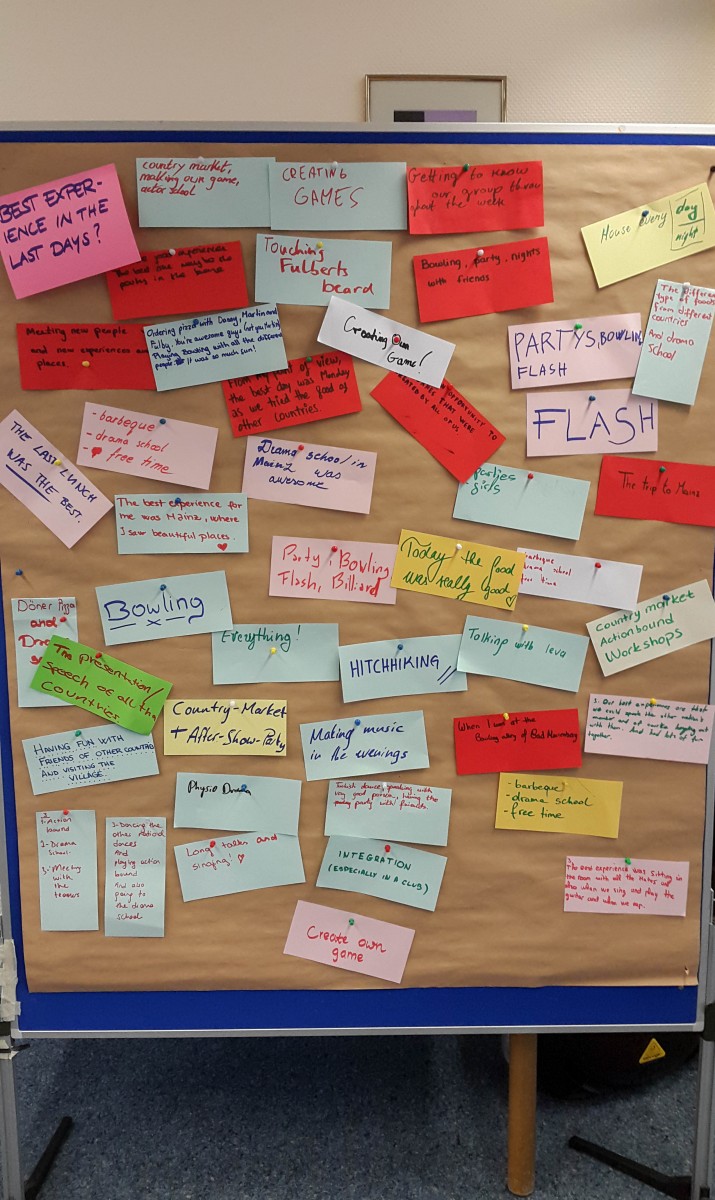 BEST EXPER-
IENCE IN THE
LAST DAYS?
country market,
making own game,
actor school
CREATING
GAMES
Getting to know
our group throu
ghout the week
House every day
night
the best one
party in the
Touching
Fulberts
beard
Bowling, party, nights
with friends
The different
type of foods
from different
countries
And drama
school
Meeting new people
and new experiences and
places.
Ordering pizza with Danny, Martin and
Fulby. You're awesome guys
Playing Bowling with all the different
people it was so much fun!
Creating Own
Game!
PARTYS, BOWLING
FLASH
From my point of view,
the best day was Monday
as we tried the food of
other countries.
OPPORTUNITY TO
THAT WERE
BY ALL OF US
FLASH
THE LAST LUNCH
WAS THE BEST.
- barbeque
- drama school
- free time
Drama school in
Mainz was
awesome
parties
girls
The trip to Mainz
The best experience for
me was Mainz, where
I saw beautiful places.
Party, Bowling
Flash, Billiard
Today the food
was really good
barbeque
drama school
free time
Döner Pizza
and
Bowling
Everything!
HITCHHIKING
Talking with Ieva
Country market
Actionbound
Workshops
The presentation/
speech of all the
countries
Country-Market
+ After-Show-Party
Making music
in the evenings
When I was at the
Bowling alley of Bad Marienberg
1. Our best experience are that
we could speak the other nation's
member and of course hanging out
with them. And had lots of fun
together.
HAVING FUN WITH
FRIENDS OF OTHER COUNTRIES
AND VISITING THE
VILLAGE.
Physio Drama
Turkish dance, speaking with
very good person, having the
party with friends.
- barbeque
- drama school
- free time
1-Action
bound
2-Drama
School.
3-Meeting
with
the
1-Dancing the
other national
dances
And
playing action
bound
And also
going to
the drama
school
Long talks and
singing!
INTEGRATION
(ESPECIALLY IN A CLUB)
3.
The best experience was sitting in
the room with all the mates and
also when we sing and play the
guitar and when we rap.
Create own
game